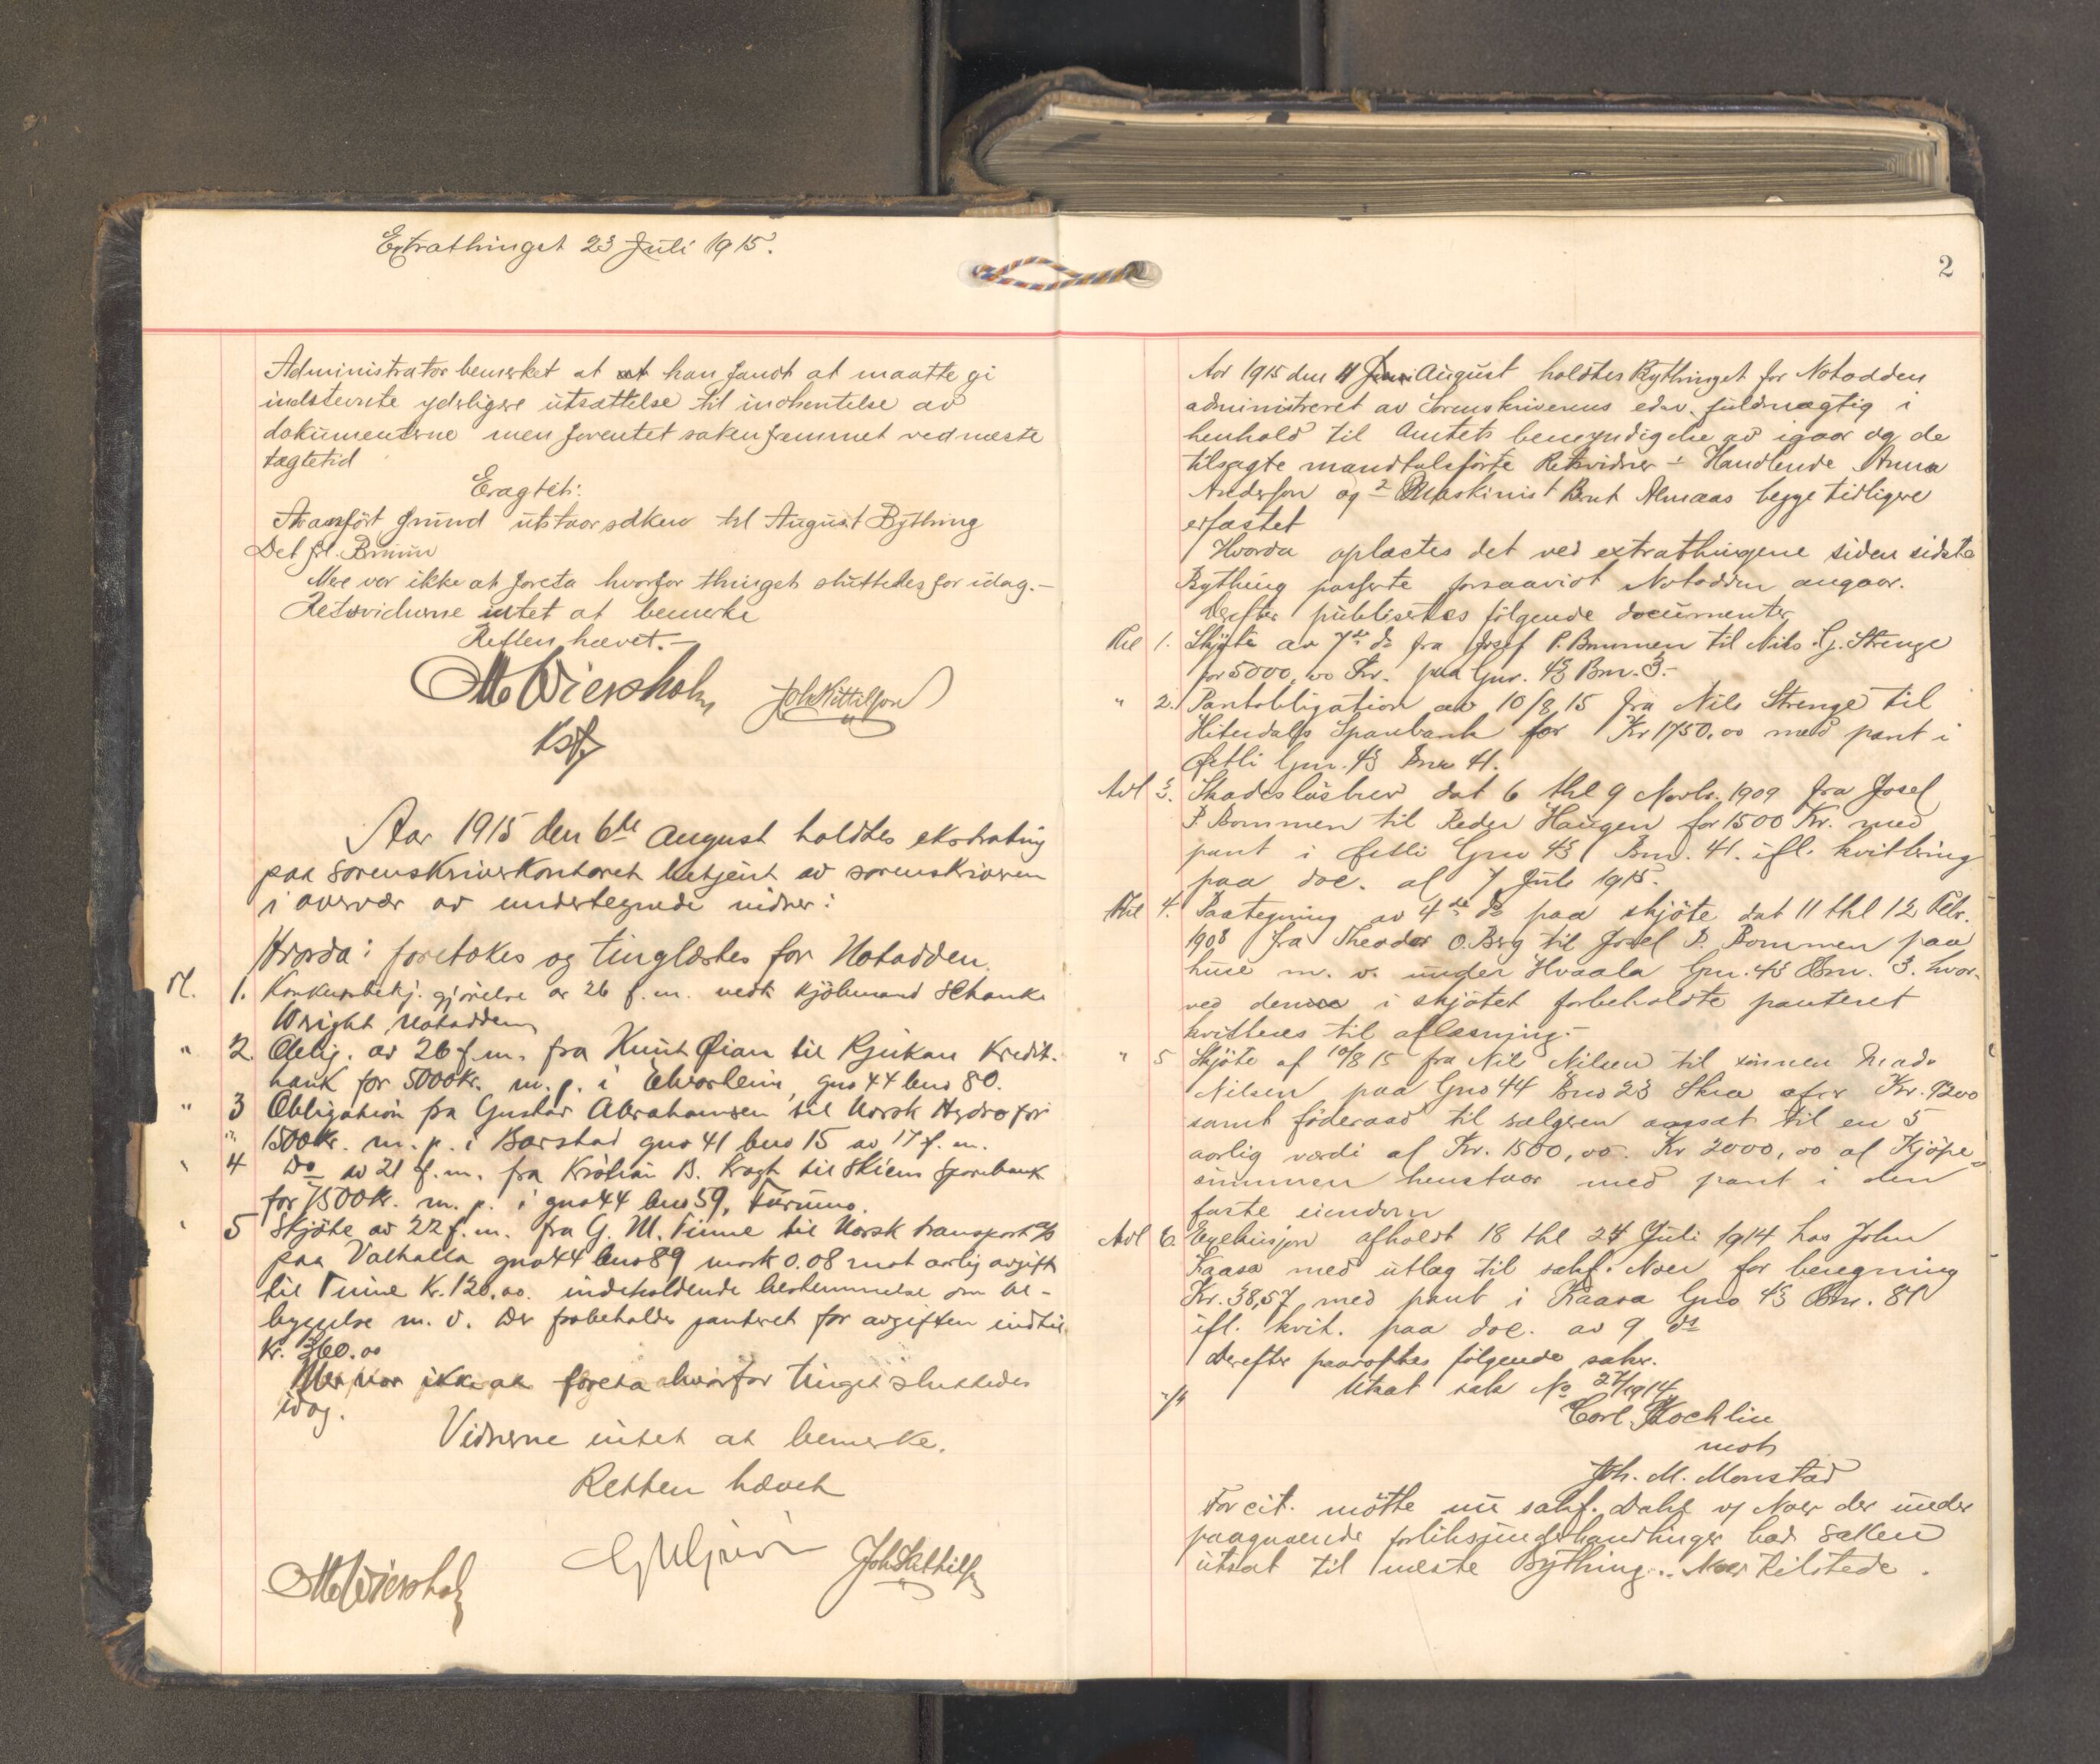 Extrathinget 23 Juli 1915.
Administrator bemerket at at han fandt at maatte gi
indstevnte yderligere utsættelse til indhentelse av
dokumenterne men forventet saken fremmet ved næste
tægtetid
Eragtet:
Anført grund utstaar saken til August Bything
Det fr. Bruun
Mere var ikke at foreta hvorfor thinget sluttedes for idag.-
Retsvidnerne intet at bemerke
Retten hævet.-
M Wiersholm Joh Kittilson
Kst
Aar 1915 den 6te August holdtes ekstrating
paa sorenskriverkontoret betjent av sorenskriveren
i overvær av undertegnede vidner:
Hvorda: foretokes og tinglæstes for Notodden.
Tl. 1. Konkursbekj. gjørelse av 26 f.m. vedk kjøbmand Schanke
Wright Notodden
" 2. Oblig. av 26 f.m. fra Knut Øian til Rjukan Kredit-
bank for 5000 kr. m. p. i Elvarheim, gno 44 bno 80.
" 3 Obligation fra Gustav Abrahamsen til Norsk Hydro for
" 1500 kr. m. p. i Barstad gno 41 bno 15 av 17 f. m.
" 4 Do av 21 f.m. fra Kristian B. Kragh til Skiens Sparebank
for 7500 kr. m. p. i gno 44 bno 59, Furumo.
" 5 Skjøte av 22 f.m. fra G. M. Tinne til Norsk Transport A/S
paa Valhalla gno 44 bno 89 mark 0.08 mot aarlig avgift
til Tinne Kr. 120.00. indeholdende bestemmelse om be-
byggelse m. v. Der forbeholdes panteret for avgiften indtil
Kr. 360.00
Mer var ikke at foreta hvorfor tinget sluttedes
idag.
Vidnerne intet at bemerke.
Retten hævet
M Wiersholm Joh Kittilson
2
Aar 1915 den 11 August holdtes Bythinget for Notodden
administreret av Sorenskriverens edsv. fuldmægtig i
henhold til Amtets bemyndigelse av igaar og de
tilsagte mandtalsførte Retsvidner 1 Handlende Anna
Anderson og 2 Maskinist Bent Almaas begge tidligere
erfastet
Hvorda oplæstes det ved extrathingene siden sidste
Bything passerte forsaavidt Notodden angaar.
Derefter publisertes følgende documenter
Thl 1. Skjøte av 7de ds fra Josef P. Bommen til Nils Gj. Strenge
for 5000,00 Kr. paa Gnr. 43 Bnr. 3.-
" 2. Pantobligation av 10/8 15 fra Nils Strenge til
Hitterdals Sparebank for Kr 1750.00 med pant i
Østli Gnr. 43 Bnr 41.
Avl 3. Skadesløsbrev dat 6 thl 9 Novbr. 1909 fra Josef
P. Bommen til Peder Haugen for 1500 Kr. med
pant i Østli Gno 43 Bnr. 41. ifl. kvittering
paa doc. af 7 Juli 1915.
Thl 4. Paategning av 4de ds paa skjøte dat 11 thl 12 Febr.
1908 fra Theodor O. Berg til Josef P. Bommen paa
huse m. v. under Hvaala Gnr. 43 Bnr. 3. hvor-
ved denne i skjøtet forbeholdte panteret
kvitteres til aflæsning.-
" 5 Skjøte af 10/8 15 fra Nils Nilsen til sønnen Mads
Nilsen paa Gno 44 Bno 23 for Kr. 7200
samt føderaad til sælgeren ansat til en 5
aarlig værdi af Kr. 1500,00. Kr 2000,00 af Kjøpe-
summen henstaar med pant i den
faste eiendom
Avl 6. Exekusjon afholdt 18 thl 24 Juli 1914 hos John
Kaasa med utlæg til sakf. Noer for beregning
Kr. 38,57 med pant i Kaasa Gno 43 Bnr. 87
ifl. kvit. paa doc. av 9 ds
Derefter paaroptes følgende saker.
Utsat sak No 27/1914
Carl Kochlin
mot
Joh. M. Monstad
For cit. møtte nu sakf. Dahl v/ Noer der under
paagaaende forliksunderhandlinger bad saken
utsat til næste Bything. Noer tilstede.